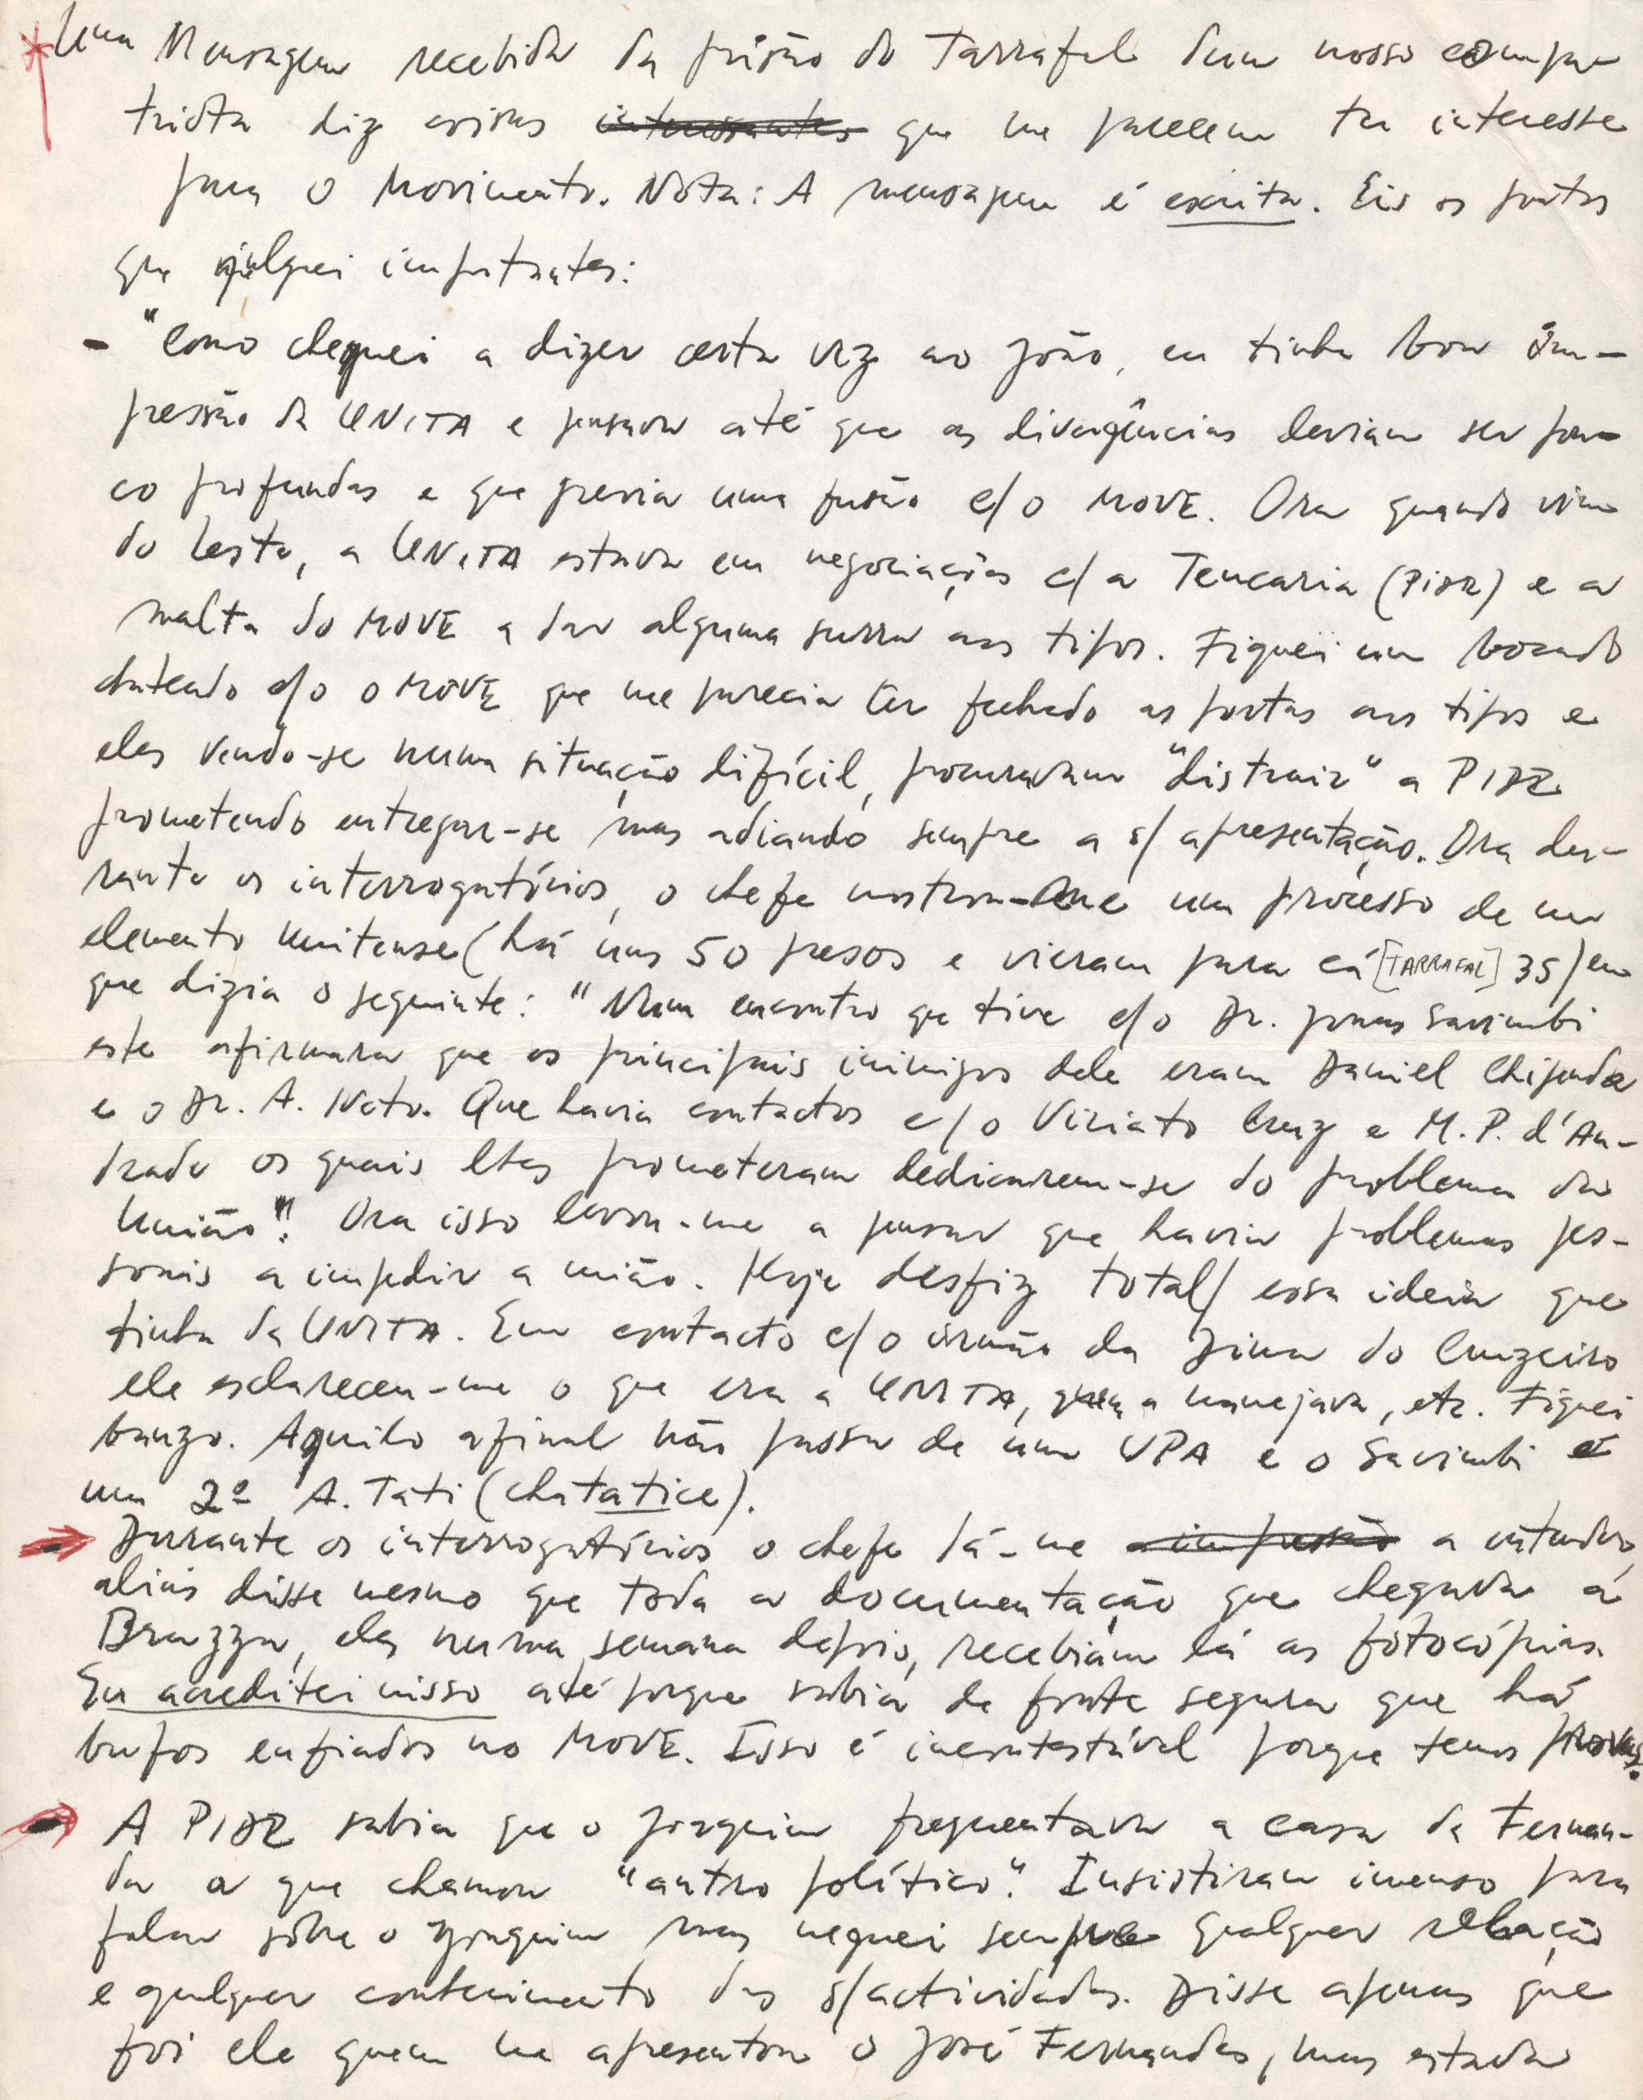 Uma Mensagem recebida da prisão do Tarrafal dum nosso compa-
triota diz coisas interessantes que me parecem ter interesse
para o Movimento. Nota: A mensagem é escrita. Eis os pontos
que julguei importantes:
- "Como cheguei a dizer certa vez ao João, eu tinha boa im-
pressão da UNITA e pensava até que as divergências deviam ser pou-
co profundas e que previa uma fusão c/o MOVE. Ora quando vim
do Leste, a UNITA estava em negociações c/ a Tencaria (PIDE) e a
malta do MOVE a dar alguma surra aos tipos. Fiquei um bocado
chateado c/o o MOVE que me parecia ter fechado as portas aos tipos e
eles vendo-se numa situação difícil, procuravam "distrair" a PIDE
prometendo entregar-se mas adiando sempre a s/ apresentação. Ora du-
rante os interrogatórios, o chefe mostrou-me um processo de um
elemento unitense (há uns 50 presos e vieram para cá [TARRAFAL] 35) em
que dizia o seguinte: "Num encontro que tive c/o Dr. Jonas Savimbi
este afirmara que os principais inimigos dele eram Daniel Chipenda
e o Dr. A. Neto. Que havia contactos c/o Viriato Cruz e M. P. d'An-
drade os quais lhes prometeram dedicarem-se do problema da
União". Ora isso levou-me a pensar que havia problemas pes-
soais a impedir a união. Hoje desfiz total/ essa ideia que
tinha da UNITA. Em contacto c/o irmão da Dina do Cruzeiro
ele esclareceu-me o que era a UNITA, quem a manejava, etc. Fiquei
banzo. Aquilo afinal não passa de uma UPA e o Savimbi é
um 2º A. Tati (chatatice).
Durante os interrogatórios o chefe dá-me a impressão a entender,
aliás disse mesmo que toda a documentação que chegava a
Brazza, eles numa semana depois, recebiam lá as fotocópias.
Eu acreditei nisso até porque sabia de fonte segura que há
bufos enfiados no MOVE. Isso é incontestável porque temos provas.
A PIDE sabia que o Joaquim frequentava a casa da Fernan-
da a que chamou "antro político". Insistiram imenso para
falar sôbre o Joaquim mas neguei sempre qualquer relação
e qualquer conhecimento das s/actividades. Disse apenas que
foi ele quem me apresentou o José Fernandes, mas estava